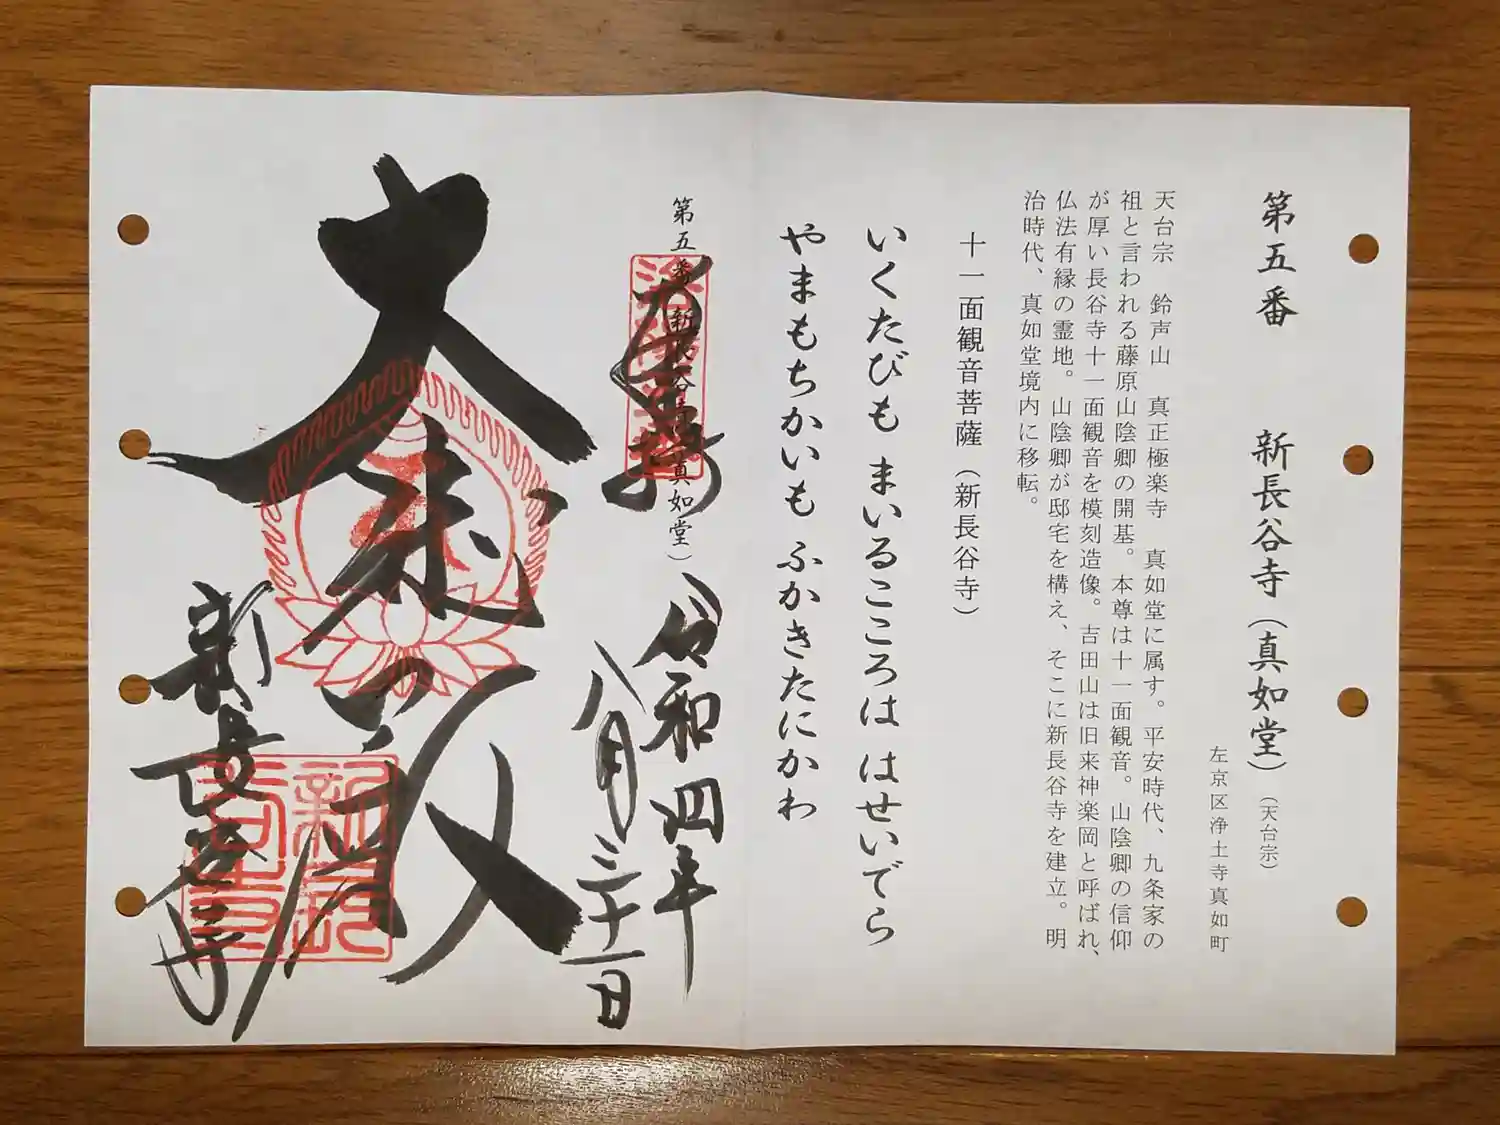 第五番　新長谷寺（真如堂）（天台宗）
左京区浄土寺真如町
天台宗　鈴声山　真正極楽寺　真如堂に属す。平安時代、九条家の
祖と言われる藤原山陰卿の開基。本尊は十一面観音。山陰卿の信仰
が厚い長谷寺十一面観音を模刻造像。吉田山は旧来神楽岡と呼ばれ、
仏法有縁の霊地。山陰卿が邸宅を構え、そこに新長谷寺を建立。明
治時代、真如堂境内に移転。
十一面観音菩薩（新長谷寺）
いくたびも まいるこころは はせいでら
やまもちかいも ふかきたにかわ
第五番 新長谷寺（真如堂）
奉拝
洛陽第五番
令和四年
八月三十一日
大悲殿
新長谷寺
新長谷寺